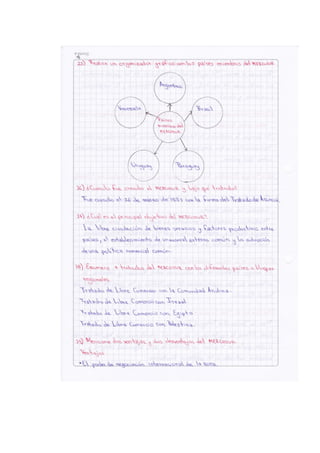 25) Realiza un organizador gráfico con los países miembros del MERCOSUR
Argentina
Venezuela
Brasil
Países miembros del MERCOSUR
Uruguay
Paraguay
26) ¿Cuándo fue creado el MERCOSUR y bajo qué tratado?
Fue creado el 26 de marzo de 1991 con la firma del Tratado de Asunción
27) ¿Cuál es el principal objetivo del MERCOSUR?
La libre circulación de bienes servicios y factores productivos entre
países, el establecimiento de un arancel externo común y la adopción
de una política comercial común.
28) Enumera 4 tratados del MERCOSUR con los diferentes países o bloques
regionales
Tratado de Libre Comercio con la Comunidad Andina.
Tratado de Libre Comercio con Israel
Tratado de Libre Comercio con Egipto
Tratado de Libre Comercio con Palestina.
29) Mencione dos ventajas y dos desventajas del MERCOSUR
Ventajas
• El poder de negociación internacional de la zona.